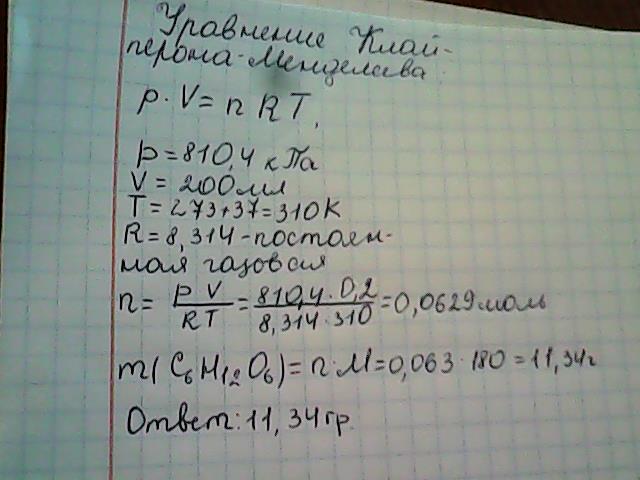 Уравнение Клай-
перона-Менделеева
p · V = n R T,
p = 810,4 кПа
V = 200 мл
T = 273+37=310K
R = 8,314 - постоян-
ная газовая
n = PV/RT = 810,4 · 0,2/8,314 · 310 = 0,0629 моль
m(C₆H₁₂O₆) = n · M = 0,063 · 180 = 11,34г
Ответ: 11,34 гр.